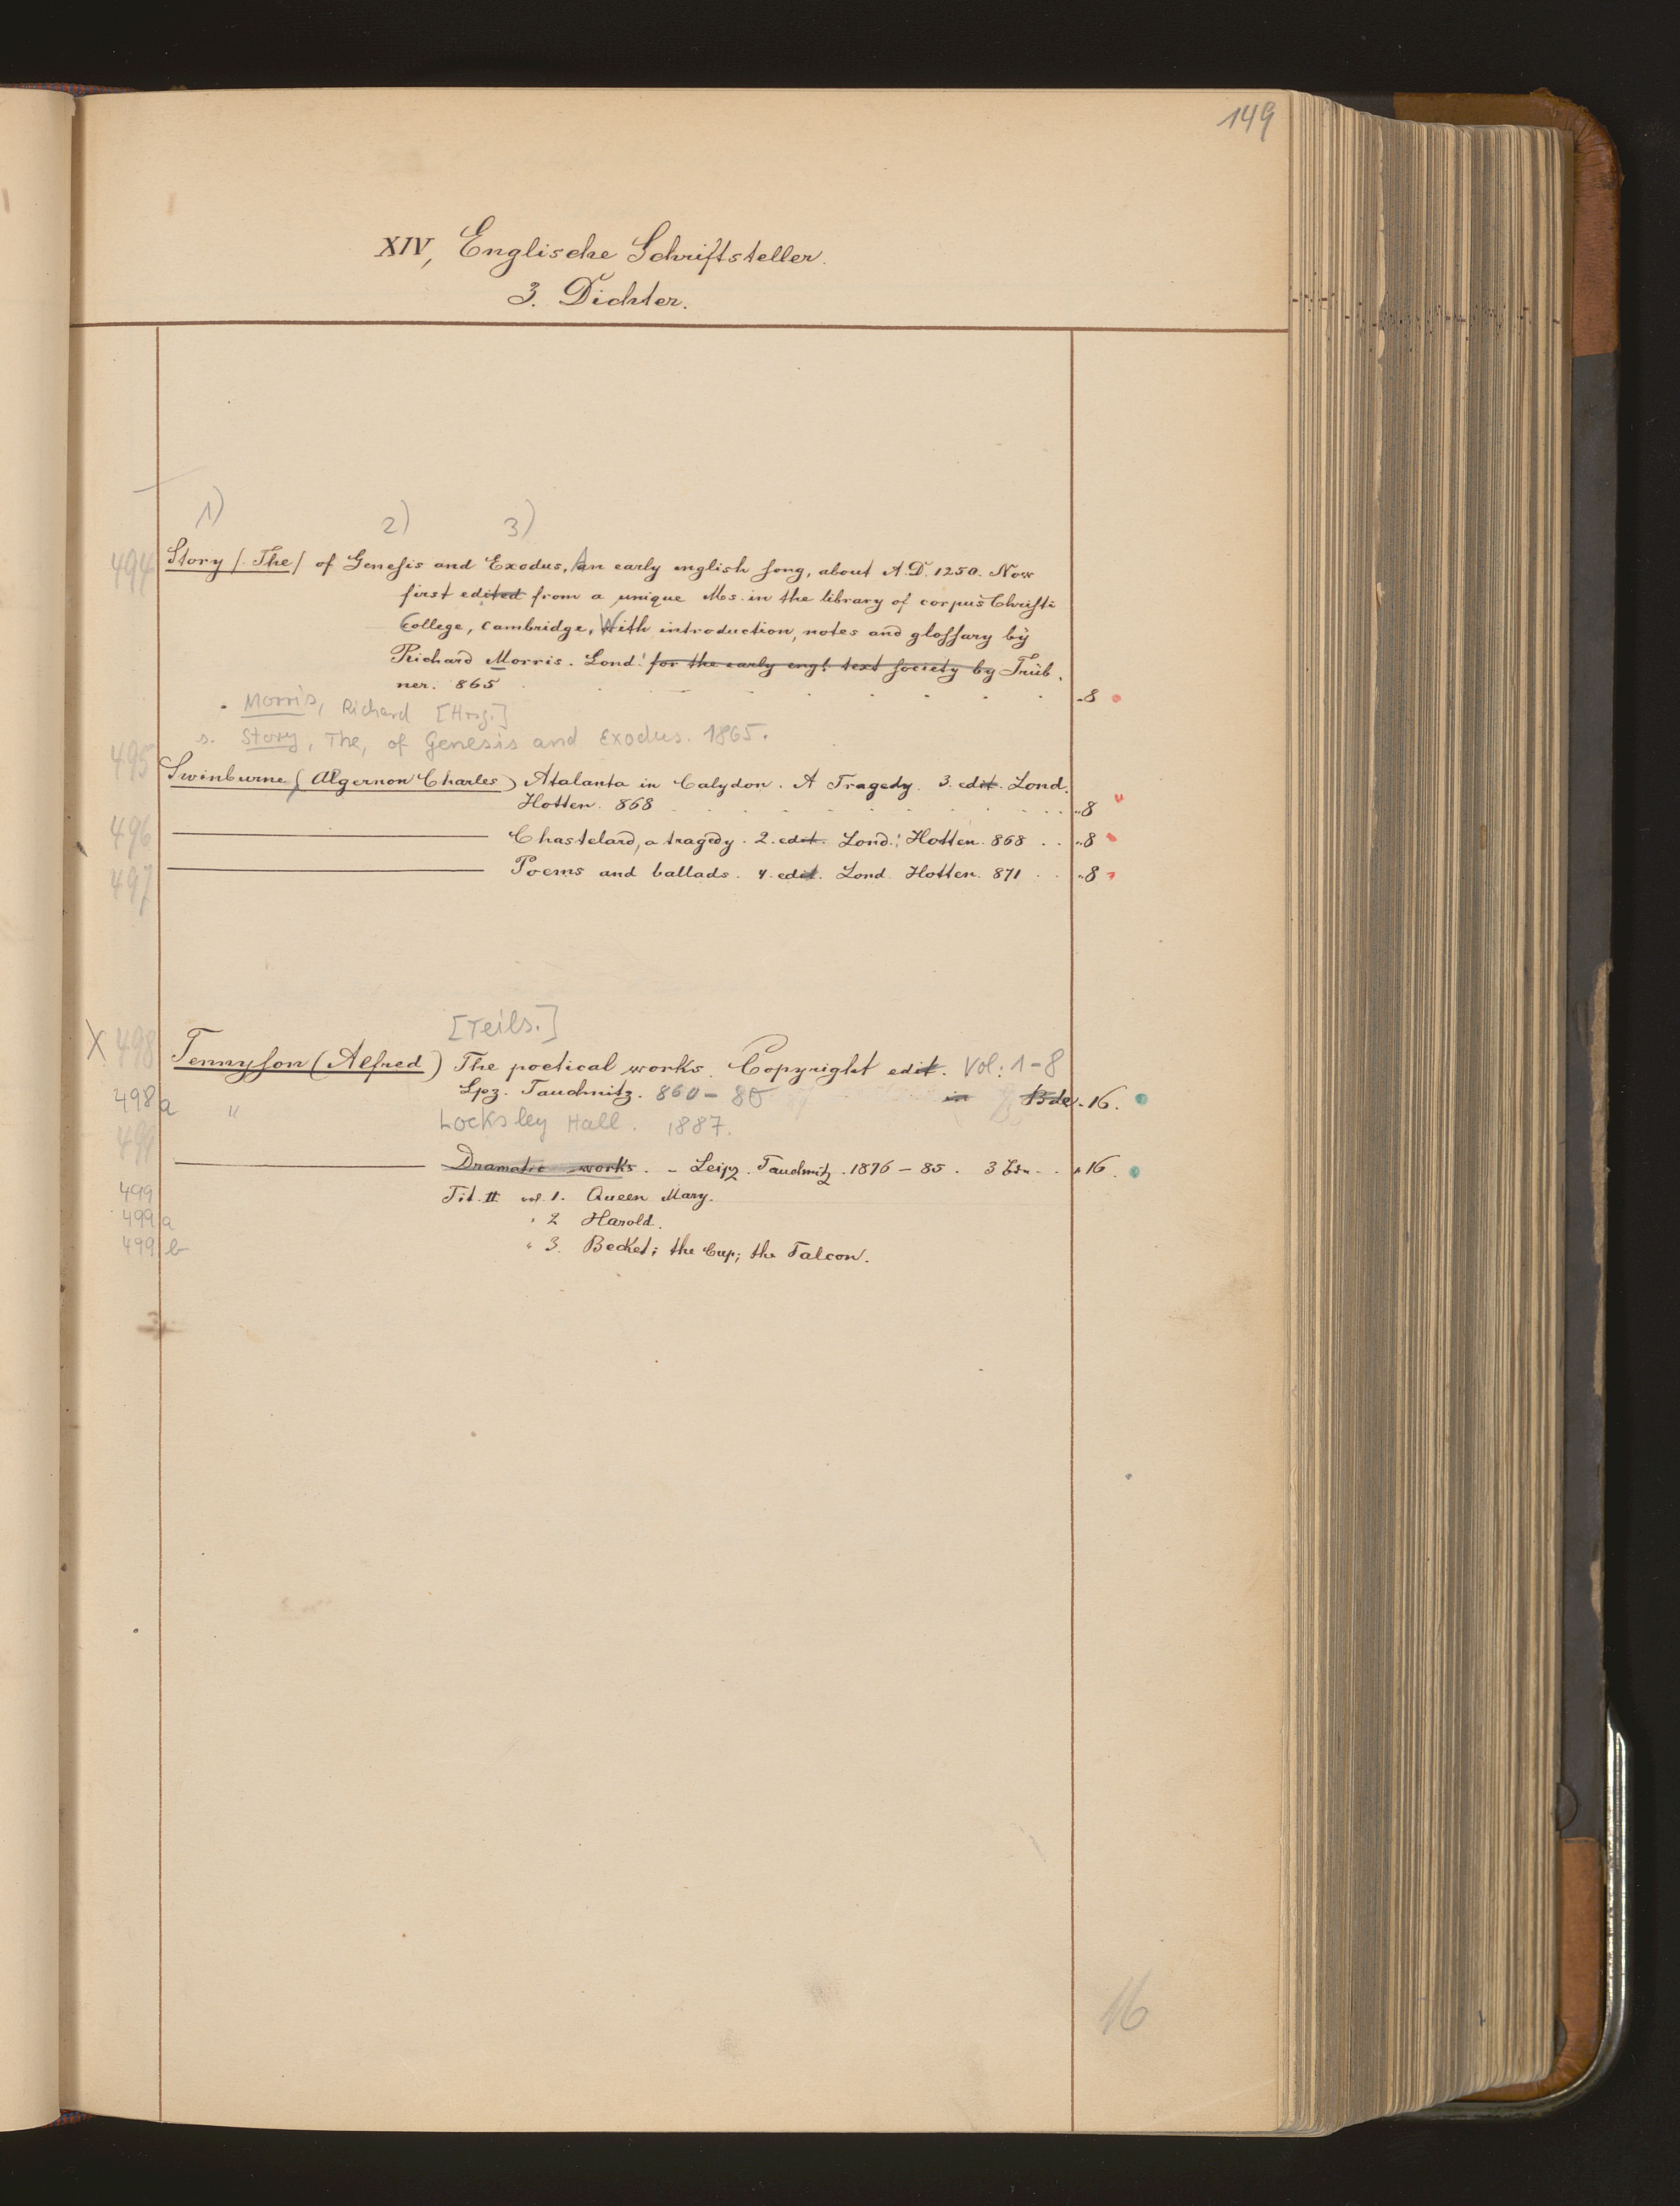 149
XIV, Englische Schriftsteller.
3. Dichter.
1) 2) 3)
494 Story (The) of Genesis and Exodus, An early english song, about A.D. 1250. Now
first edited from a unique Ms. in the library of corpus Christi
College, Cambridge, With introduction, notes and glossary by
Richard Morris. Lond: for the early engl. text society by Trüb-
ner. 865 . . . . . . . „8
Morris, Richard [Hrsg.]
s. Story, The, of Genesis and Exodus. 1865.
495 Swinburne (Algernon Charles) Atalanta in Calydon. A Tragedy. 3. edit. Lond.
Hotten. 868 . . . . . . . „8
496 Chastelard, a tragedy. 2. edit. Lond: Hotten. 868 . . „8
497 Poems and ballads. 4. edit. Lond. Hotten. 871 . . „8
[Teils.]
X 498 Tennyson (Alfred) The poetical works. Copyright edit. Vol: 1-8
Lpz. Tauchnitz. 860 - 80 in Bde. „16.
498a " Locksley Hall. 1887.
499 Dramatic works. - Leipz. Tauchnitz. 1876 - 85. 3 Bde. . „16.
499 Tit. II. vol. 1. Queen Mary.
499a " 2 Harold.
499b " 3. Becket; the Cup; the Falcon.
16